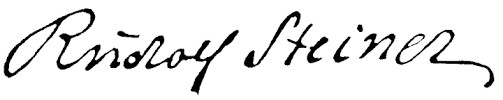 Rudolf Steiner